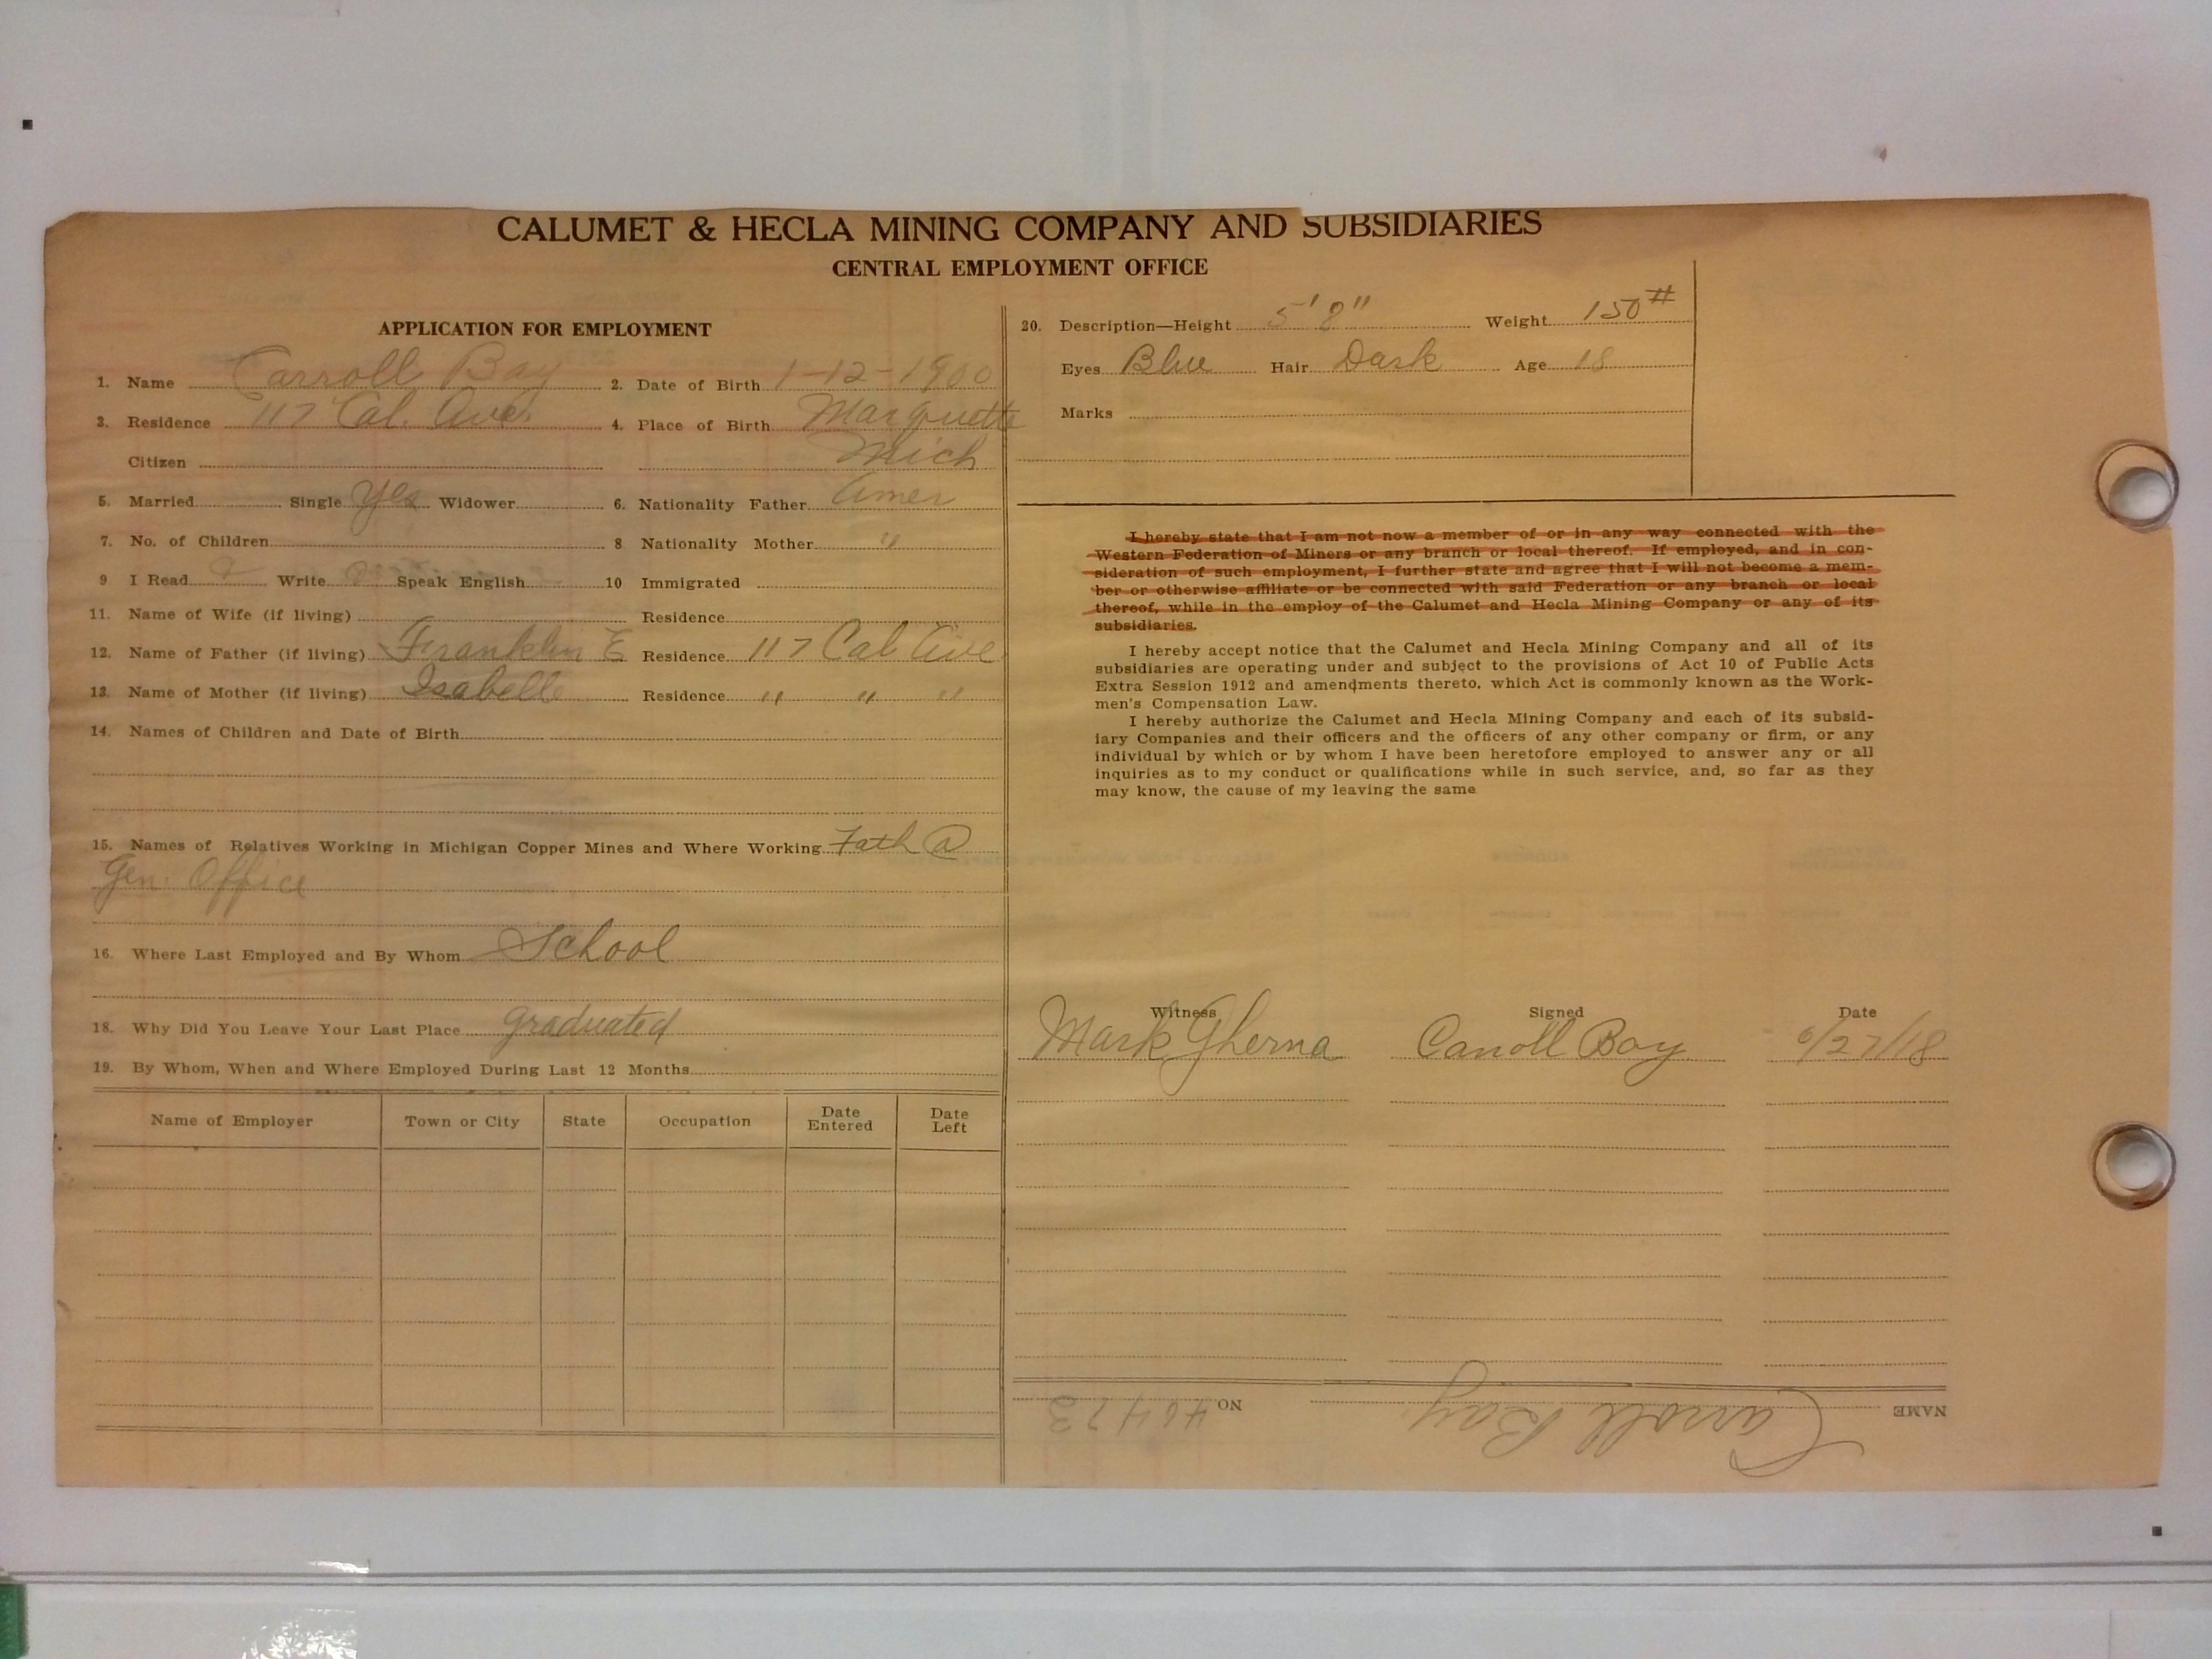 CALUMET & HECLA MINING COMPANY AND SUBSIDIARIES
CENTRAL EMPLOYMENT OFFICE
APPLICATION FOR EMPLOYMENT
1. Name Carroll Bay 2. Date of Birth 1-12-1900
3. Residence 117 Cal. Ave. 4. Place of Birth Marquette
Citizen Mich
5. Married Single Yes Widower 6. Nationality Father Amer
7. No. of Children 8 Nationality Mother "
9 I Read Write Speak English 10 Immigrated
11. Name of Wife (if living) Residence
12. Name of Father (if living) Franklin E Residence 117 Cal Ave
13. Name of Mother (if living) Isabelle Residence " " "
14. Names of Children and Date of Birth
15. Names of Relatives Working in Michigan Copper Mines and Where Working Fath @
Gen. Office
16. Where Last Employed and By Whom School
18. Why Did You Leave Your Last Place graduated
19. By Whom, When and Where Employed During Last 12 Months
Name of Employer Town or City State Occupation Date Entered Date Left
20. Description—Height 5' 8" Weight 150#
Eyes Blue Hair Dark Age 18
Marks
I hereby state that I am not now a member of or in any way connected with the
Western Federation of Miners or any branch or local thereof. If employed, and in con-
sideration of such employment, I further state and agree that I will not become a mem-
ber or otherwise affiliate or be connected with said Federation or any branch or local
thereof, while in the employ of the Calumet and Hecla Mining Company or any of its
subsidiaries.
I hereby accept notice that the Calumet and Hecla Mining Company and all of its
subsidiaries are operating under and subject to the provisions of Act 10 of Public Acts
Extra Session 1912 and amendments thereto, which Act is commonly known as the Work-
men's Compensation Law.
I hereby authorize the Calumet and Hecla Mining Company and each of its subsid-
iary Companies and their officers and the officers of any other company or firm, or any
individual by which or by whom I have been heretofore employed to answer any or all
inquiries as to my conduct or qualifications while in such service, and, so far as they
may know, the cause of my leaving the same
Witness Signed Date
Mark Gherna Carroll Bay 6/27/18
NAME Carroll Bay NO